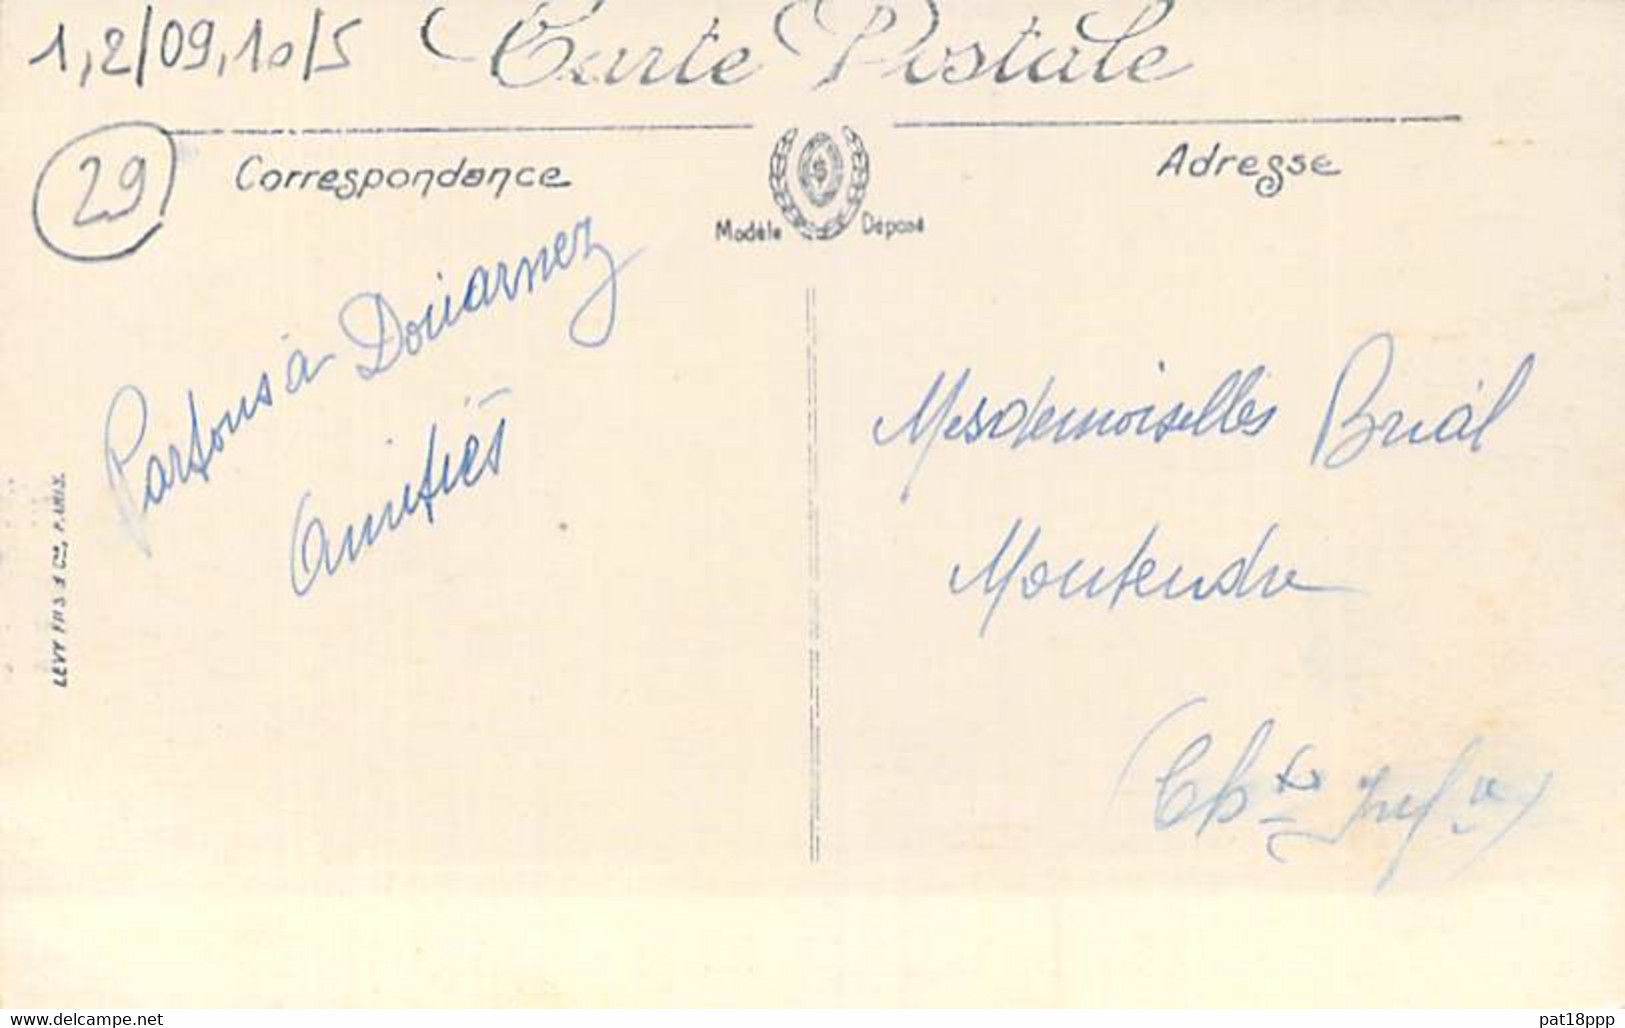 1,2/09,10/5
Carte Postale
29
Correspondance
Adresse
Modèle Déposé
Partons à Douarnez
Amitiés
Mesdemoiselles Brial
Montendre
(Ch.te Infre)
LEVY FILS & Cie, PARIS.
www.delcampe.net
pat18ppp